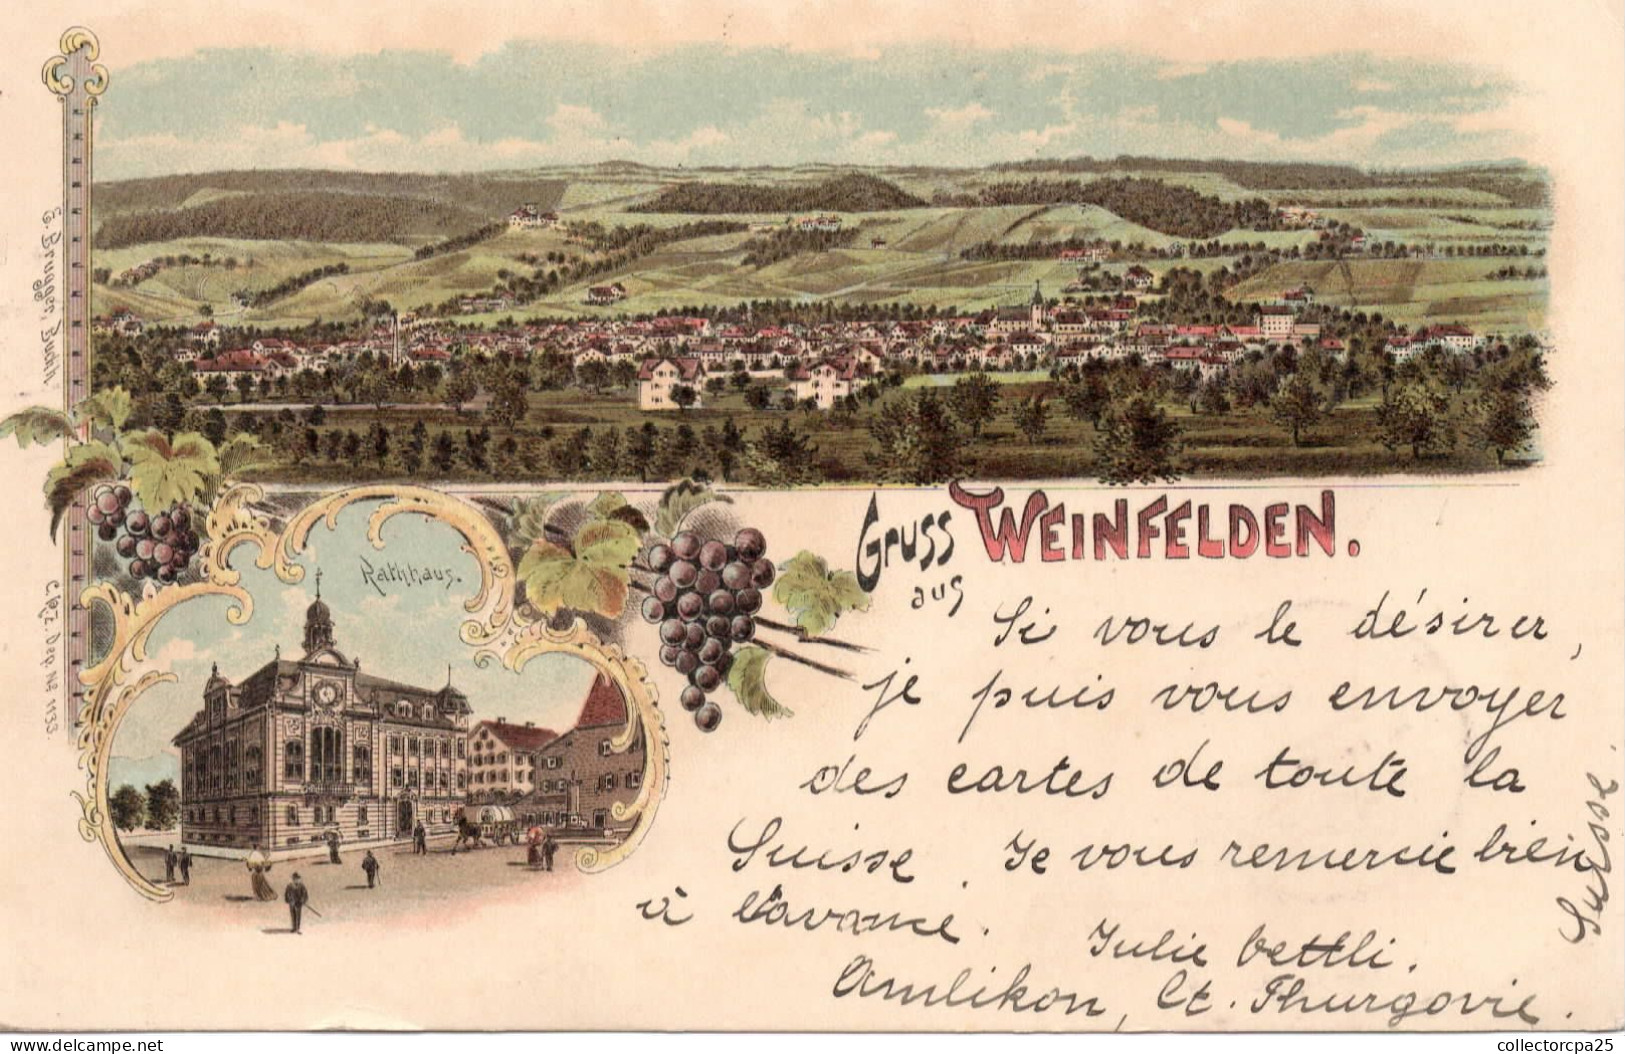 Gruss
aus
WEINFELDEN.
Rathhaus.
Si vous le désirer,
je puis vous envoyer
des cartes de toute la
Suisse. Je vous remercie bien
à l'avance.
Julie Bettli.
Amlikon, Ct. Thurgovie.
Suisse.
C/gz. Dep. № 1133.
delcampe.net
collectorcpa25